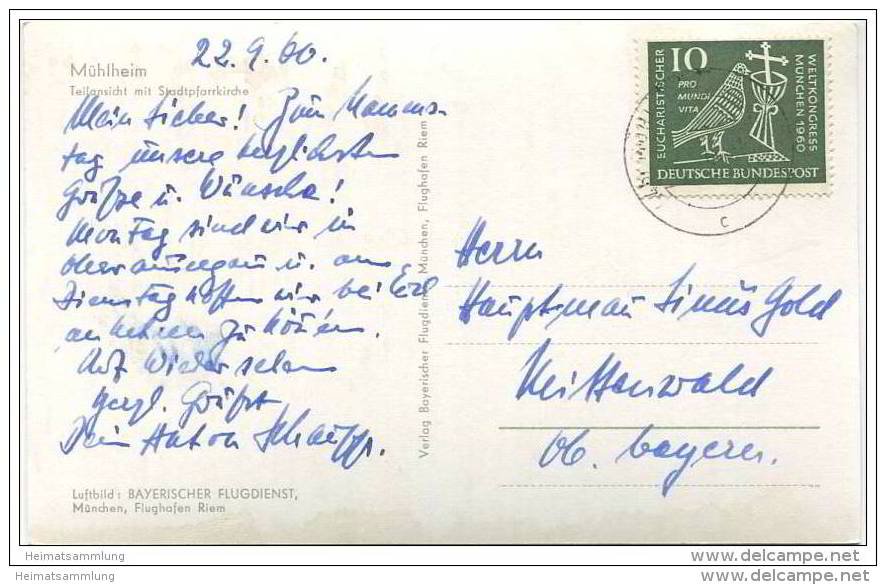 Mühlheim
Teilansicht mit Stadtpfarrkirche
22.9.60.
Mein Lieber! Zum Namens-
tag unsere herzlichsten
Grüße u. Wünsche!
Montag sind wir in
Oberammergau u. am
Dienstag hoffen wir bei Euch
zu können.
Auf Wiedersehen
herzl. Grüße
Dein Anton
Luftbild: BAYERISCHER FLUGDIENST,
München, Flughafen Riem
Verlag Bayerischer Flugdienst, München, Flughafen Riem
10
PRO
MUNDI
VITA
EUCHARISTISCHER
WELTKONGRESS
MÜNCHEN 1960
DEUTSCHE BUNDESPOST
c
Herrn
Hauptmann Gold
Mittenwald
Ob. bayern.
Heimatsammlung
Heimatsammlung
delcampe.net
delcampe.net